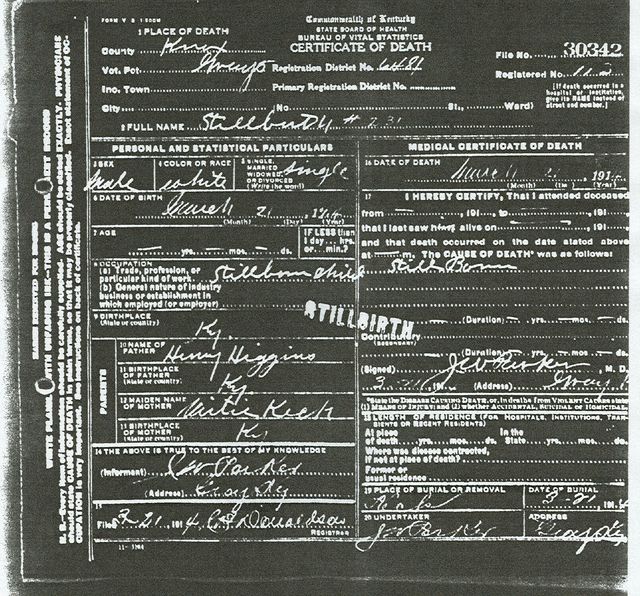 FORM V S 1 500M
Commonwealth of Kentucky
STATE BOARD OF HEALTH
BUREAU OF VITAL STATISTICS
CERTIFICATE OF DEATH
1 PLACE OF DEATH
County Knox
File No. 30342
Vot. Pct Registration District No. 6481
Registered No. 112
Inc. Town Primary Registration District No.
[If death occurred in a hospital or institution, give its NAME instead of street and number.]
City (No St., Ward)
2 FULL NAME Stillbirth # 231
PERSONAL AND STATISTICAL PARTICULARS
3 SEX male
4 COLOR OR RACE white
5 SINGLE, MARRIED WIDOWED OR DIVORCED (Write the word) single
6 DATE OF BIRTH March 21, 1914
(Month) (Day) (Year)
7 AGE yrs. mos. ds.
IF LESS than 1 day hrs. or min.?
8 OCCUPATION
(a) Trade, profession, or particular kind of work Stillborn child
(b) General nature of industry
business or establishment in
which employed (or employer)
9 BIRTHPLACE
(State or country) Ky.
PARENTS
10 NAME OF FATHER Henry Higgins
11 BIRTHPLACE OF FATHER (State or country) Ky.
12 MAIDEN NAME OF MOTHER Keck
13 BIRTHPLACE OF MOTHER (State or country) Ky
14 THE ABOVE IS TRUE TO THE BEST OF MY KNOWLEDGE
(Informant) Parker
(Address) Gray Ky
15
Filed 3-21, 1914 Donaldson
REGISTRAR
11-3184
STILLBIRTH
MEDICAL CERTIFICATE OF DEATH
16 DATE OF DEATH March 21, 1914
(Month) (Da ) (Year)
17 I HEREBY CERTIFY, That I attended deceased
from , 191 , to , 191
that I last saw h alive on , 191
and that death occurred on the date stated above
at m. The CAUSE OF DEATH* was as follows:
Still Born
(Duration) yrs. mos. ds.
Contributory
(SECONDARY)
(Duration) yrs. mos. ds.
(Signed) Parker, M. D.
3-21, 191 (Address) Gray
*State the DISEASE CAUSING DEATH, or, in deaths from VIOLENT CAUSES state
(1) MEANS OF INJURY; and (2) whether ACCIDENTAL, SUICIDAL or HOMICIDAL.
18 LENGTH OF RESIDENCE (FOR HOSPITALS, INSTITUTIONS, TRANSIENTS OR RECENT RESIDENTS)
At place of death yrs. mos. ds. In the State yrs. mos. ds.
Where was disease contracted,
if not at place of death?
Former or
usual residence
19 PLACE OF BURIAL OR REMOVAL
DATE OF BURIAL 3-21, 1914
20 UNDERTAKER Parker
ADDRESS Gray Ky